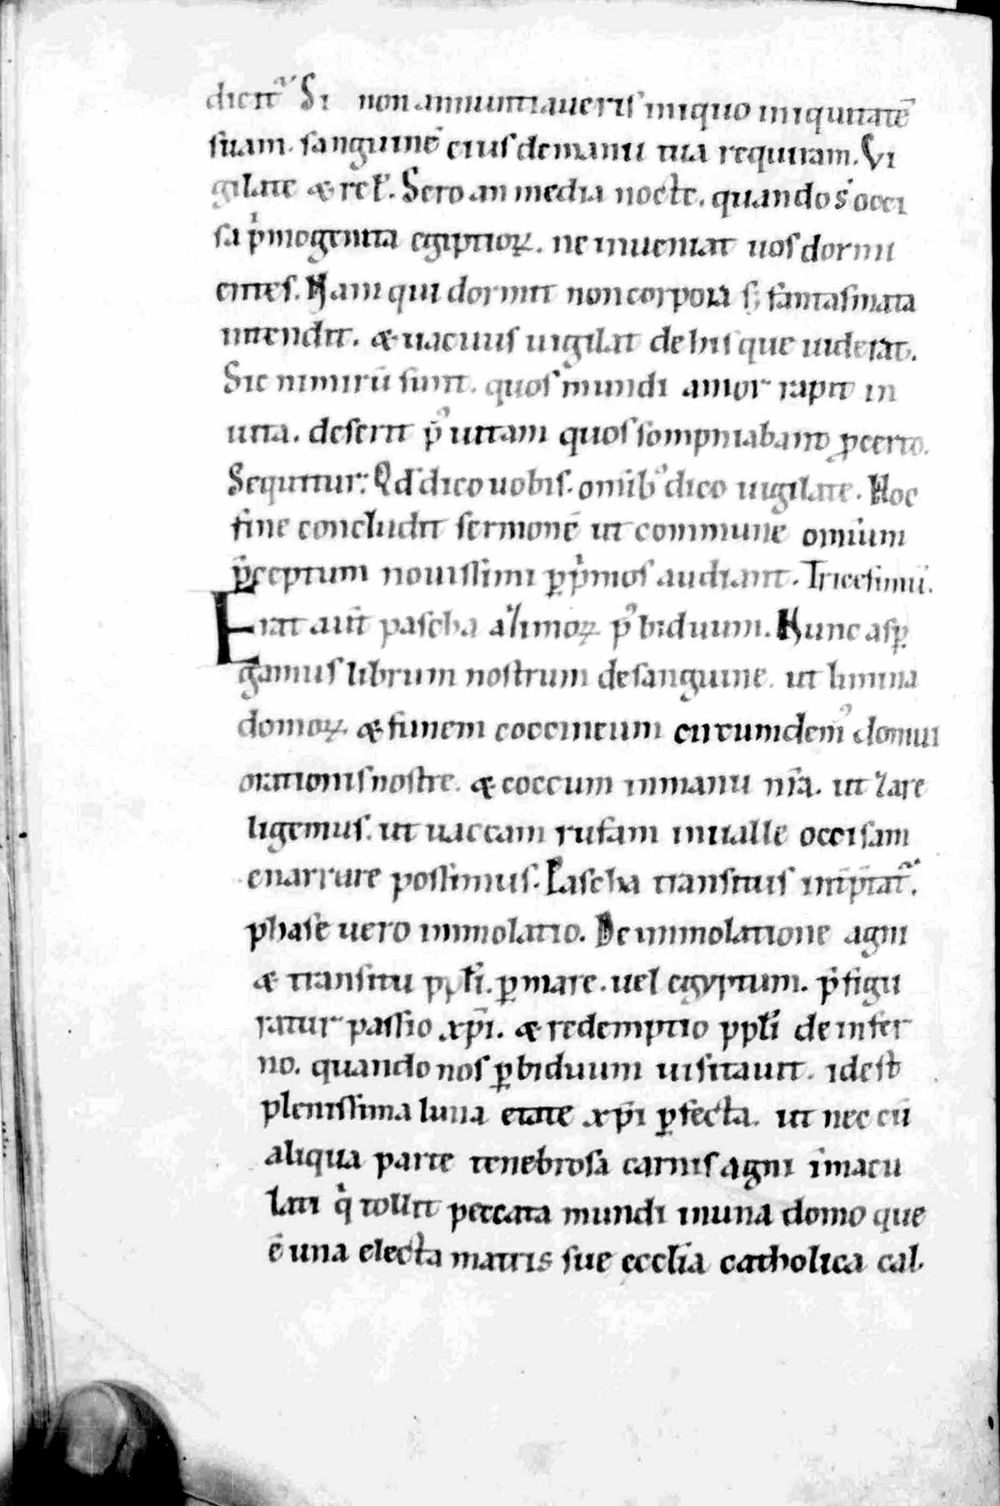 dicit᷑ Si non annuntiaueris iniquo iniquitatē
suam. sanguinē eius de manu tua requiram. Vi
gilate & rel̄. Sero an media nocte. quando s̄ occi
sa p̍mogenita egiptioꝝ. ne inueniat uos dormi
entes. Nam qui dormit non corpora sꝫ fantasmata
intendit. & uacuus uigilat de his que uiderat.
Sic nimirū sunt. quos mundi amor rapit in
uita. deserit p᷒ uitam quos sompniabant ꝑ certo.
Sequitur: Qd̄ dico uobis. omīb᷒ dico uigilate. Hoc
fine concludit sermonē ut commune omīum
p̄ceptum nouissimi ꝑ p̍mos audiant. Tricesimū.
Erat aūt pascha aꝫimoꝝ p᷒ biduum. Nunc asꝑ
gamus librum nostrum de sanguine. ut limina
domoꝝ. & funem coccineum circumdem᷒ domui
orationis nostre. & coccum in manu nr̄a. ut ꝫare
ligemus. ut uaccam rufam in ualle occisam
enarrare possimus. Pascha transitus int̄p̄tat᷑.
phase uero immolatio. De immolatione agni
& transitu ppl̄i. ꝑ mare. uel egyptum. p̄figu
ratur passio xp̄i. & redemptio ppl̄i de infer
no. quando nos ꝑ biduum uisitauit. id est
plenissima luna etate xp̄i ꝑfecta. ut nec cū
aliqua parte tenebrosa carnis agni īmacu
lati q̍ tollit peccata mundi in una domo que
ē una electa matris sue eccl̄ia catholica cal.